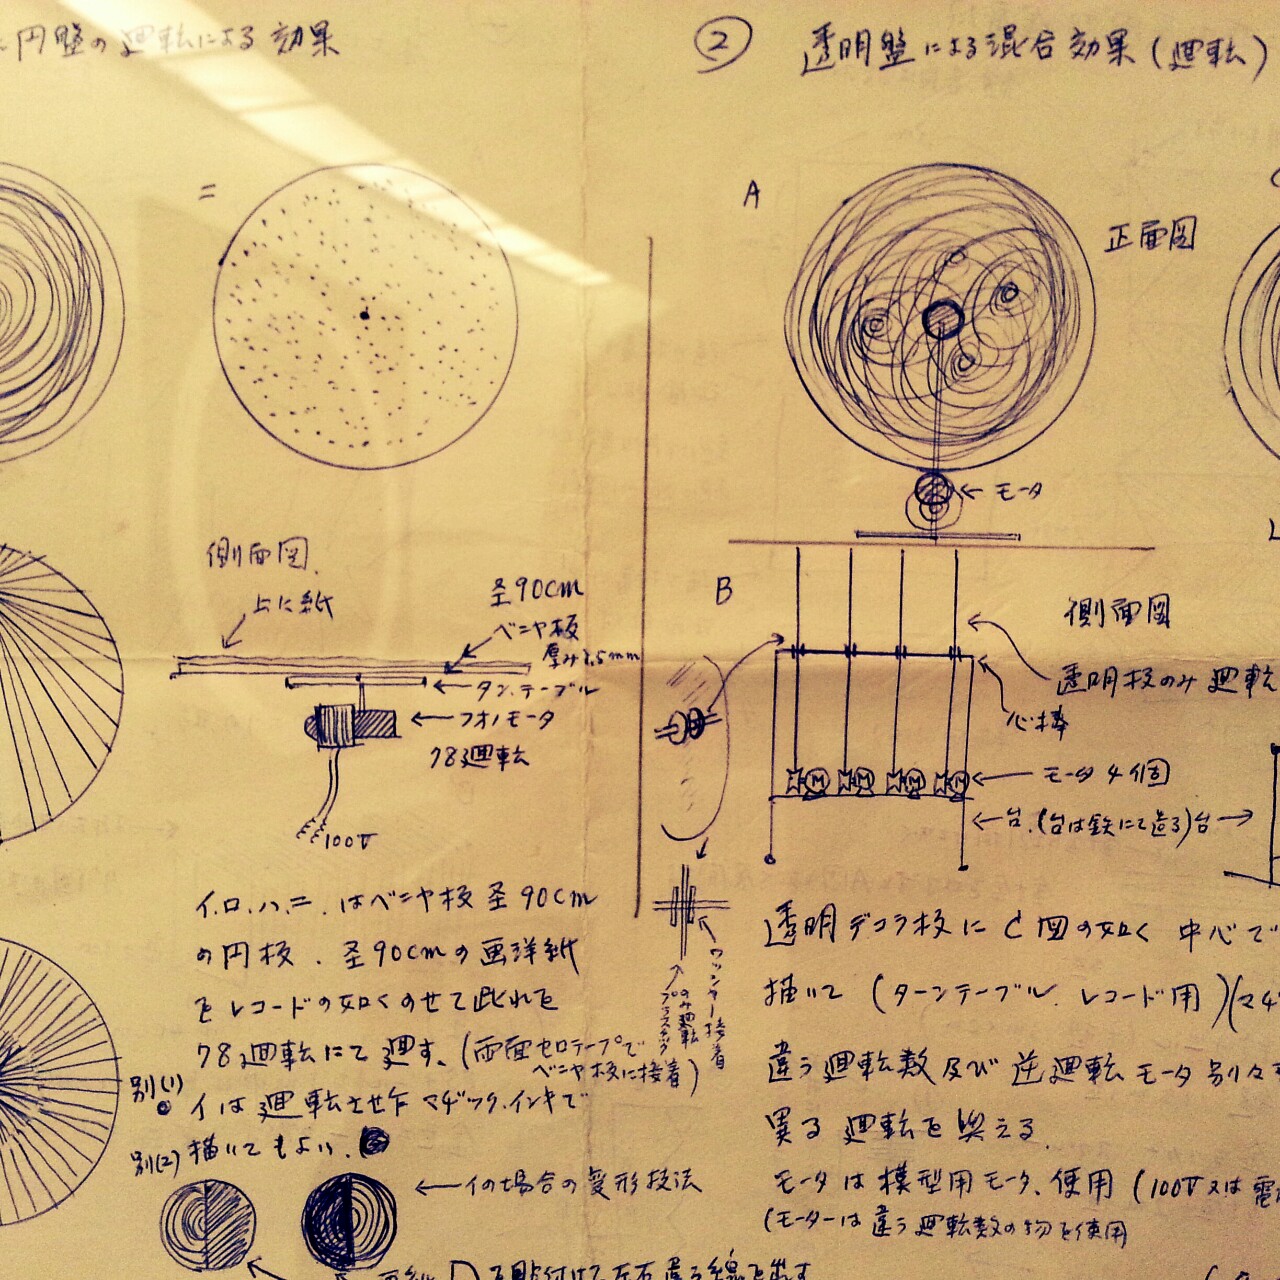 円盤の廻転による効果
=
側面図
上に紙
圣90cm
ベニヤ板
厚み2.5mm
タンテーブル
フオノモータ
78廻転
100V
イ.ロ.ハ.ニ.はベニヤ板圣90cm
の円板.圣90cmの画洋紙
をレコードの如くのせて此れを
78廻転にて廻す。(両面セロテープで
ベニヤ板に接着)
別(1)
イは廻転させ乍マヂック.インキで
別(2)
描いてもよい.
イの場合の変形技法
② 透明盤による混合効果(廻転)
A
正面図
モータ
B
側面図
透明板のみ廻転
心棒
モータ4個
台.(台は鉄にて造る)台
ワッシャー接着
プラスチック
のみ廻転
透明デコラ板にC図の如く中心で
描いて(ターンテーブル.レコード用)(マヂ
違う廻転数及び逆廻転モータ別々
異る廻転を与える.
モータは模型用モータ、使用(100V又は電
(モーターは違う廻転数の物を使用
を貼付けて左右違う線を出す